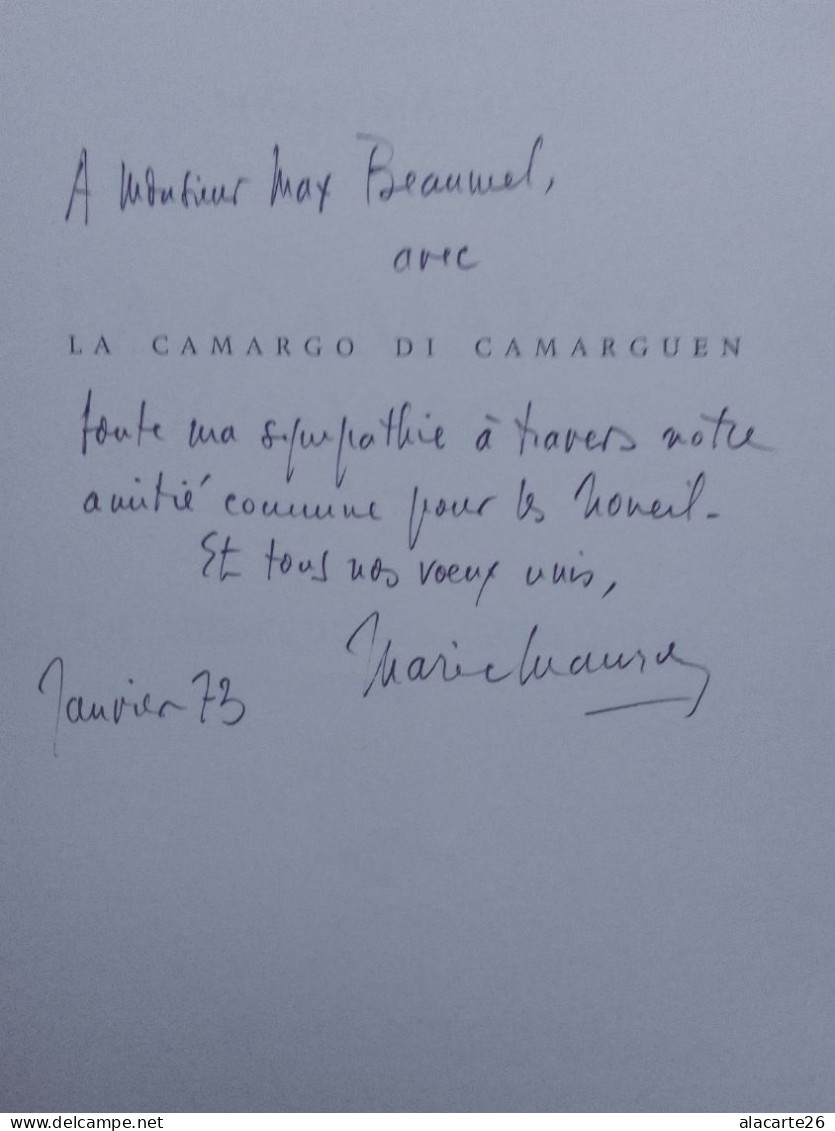 A Monsieur Max Beaumel,
avec
LA CAMARGO DI CAMARGUEN
toute ma sympathie à travers notre
amitié commune pour les
Et tous nos voeux unis,
Marie Mauron
Janvier 73
www.delcampe.net
alacarte26